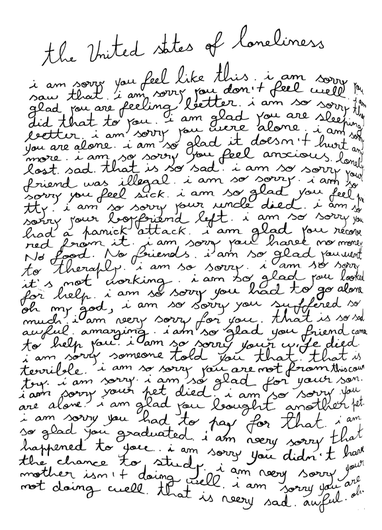 the United states of loneliness
i am sorry you feel like this. i am sorry you
saw that. i am sorry you don't feel well. i am
glad you are feeling better. i am so sorry they
did that to you. i am glad you are sleeping
better. i am sorry you were alone. i am sorry
you are alone. i am so glad it doesn't hurt any
more. i am so sorry you feel anxious. lonely.
lost. sad. that is so sad. i am so sorry your
friend was illegal. i am so sorry. i am so
sorry you feel sick. i am so glad you feel pre
tty. i am so sorry your uncle died. i am so
sorry your boyfriend left. i am so sorry you
had a panick attack. i am glad you recove
red from it. i am sorry you have no money.
No food. No friends. i am so glad you went
to theraply. i am so sorry. i am so sorry
it's not working. i am so glad you looked
for help. i am so sorry you had to go alone
oh my god, i am so sorry you suffered so
much. i am very sorry for you. that is so sad
awful. amazing. i am so glad you friend came
to help you. i am so sorry your wife died
i am sorry someone told you that. that is
terrible. i am so sorry you are not from this coun
try. i am sorry. i am so glad for your son.
i am sorry your pet died. i am so sorry you
are alone. i am glad you bought another pet.
i am sorry you had to pay for that. i am
so glad you graduated. i am very sorry that
happened to you. i am sorry you didn't have
the chance to study. i am very sorry your
mother isn't doing well. i am sorry you are
not doing well. that is very sad. awful. oh